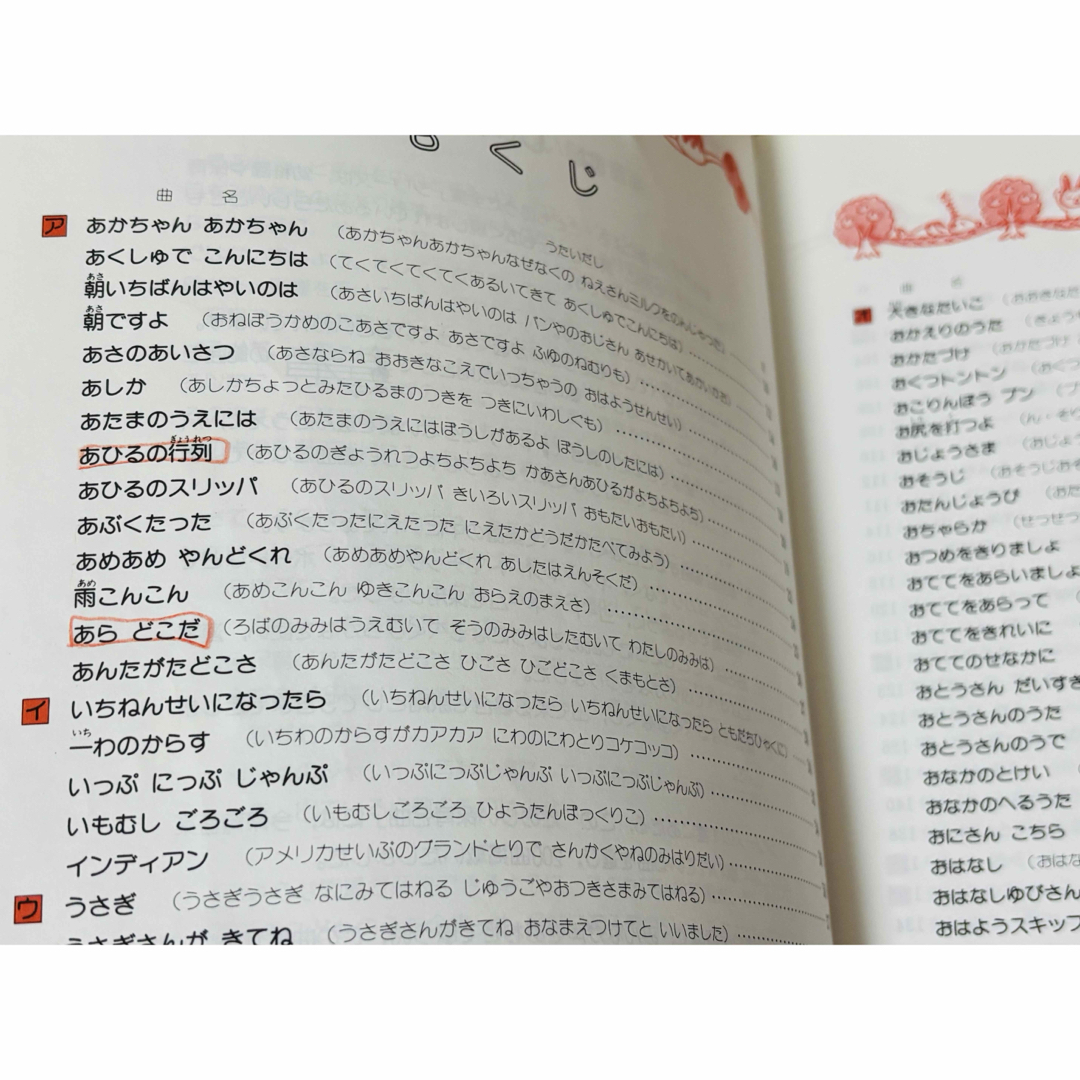 もくじ
曲　名
うたいだし
ア あかちゃん あかちゃん （あかちゃんあかちゃんなぜなくの ねえさんミルクをのんじゃった）
あくしゅで こんにちは （てくてくてくてくあるいてきて あくしゅでこんにちは）
朝いちばんはやいのは （あさいちばんはやいのは パンやのおじさん あせかいてあかいかお）
朝ですよ （おねぼうかめのこあさですよ あさですよ ふゆのねむりも）
あさのあいさつ （あさならね おおきなこえでいっちゃうの おはようせんせい）
あしか （あしかちょっとみたひるまのつきを つきにいわしぐも）
あたまのうえには （あたまのうえにはぼうしがあるよ ぼうしのしたには）
あひるの行列 （あひるのぎょうれつよちよちよち かあさんあひるがよちよちよち）
あひるのスリッパ （あひるのスリッパ きいろいスリッパ おもたいおもたい）
あぶくたった （あぶくたったにえたった にえたかどうだかたべてみよう）
あめあめ やんどくれ （あめあめやんどくれ あしたはえんそくだ）
雨こんこん （あめこんこん ゆきこんこん おらえのまえさ）
あら どこだ （ろばのみみはうえむいて ぞうのみみはしたむいて わたしのみみは）
あんたがたどこさ （あんたがたどこさ ひごさ ひごどこさ くまもとさ）
イ いちねんせいになったら （いちねんせいになったら いちねんせいになったら ともだちひゃくに）
一わのからす （いちわのからすがカアカア にわのにわとりコケコッコ）
いっぷ にっぷ じゃんぷ （いっぷにっぷじゃんぷ いっぷにっぷじゃんぷ）
いもむし ごろごろ （いもむしごろごろ ひょうたんぽっくりこ）
インディアン （アメリカせいぶのグランドとりで さんかくやねのみはりだい）
ウ うさぎ （うさぎうさぎ なにみてはねる じゅうごやおつきさまみてはねる）
うさぎさんが きてね （うさぎさんがきてね おなまえつけてと いいました）
曲　名
オ 大きなたいこ （おおきなたいこ
おかえりのうた （きょう
おかたづけ （おかたづけ
おくつトントン （おくつ
おこりんぼう プン
お尻を打つよ （ん・そ
おじょうさま （おじょ
おそうじ （おそうじお
おたんじょうび （おた
おちゃらか （せつせつ
おつめをきりましょ
おててをあらいましょ
おててをあらって
おててをきれいに
おててのせなかに
おとうさん だいすき
おとうさんのうた
おとうさんのうで
おなかのとけい
おなかのへるうた
おにさん こちら
おはなし （おはな
おはなしゆびさん
おはようスキップ